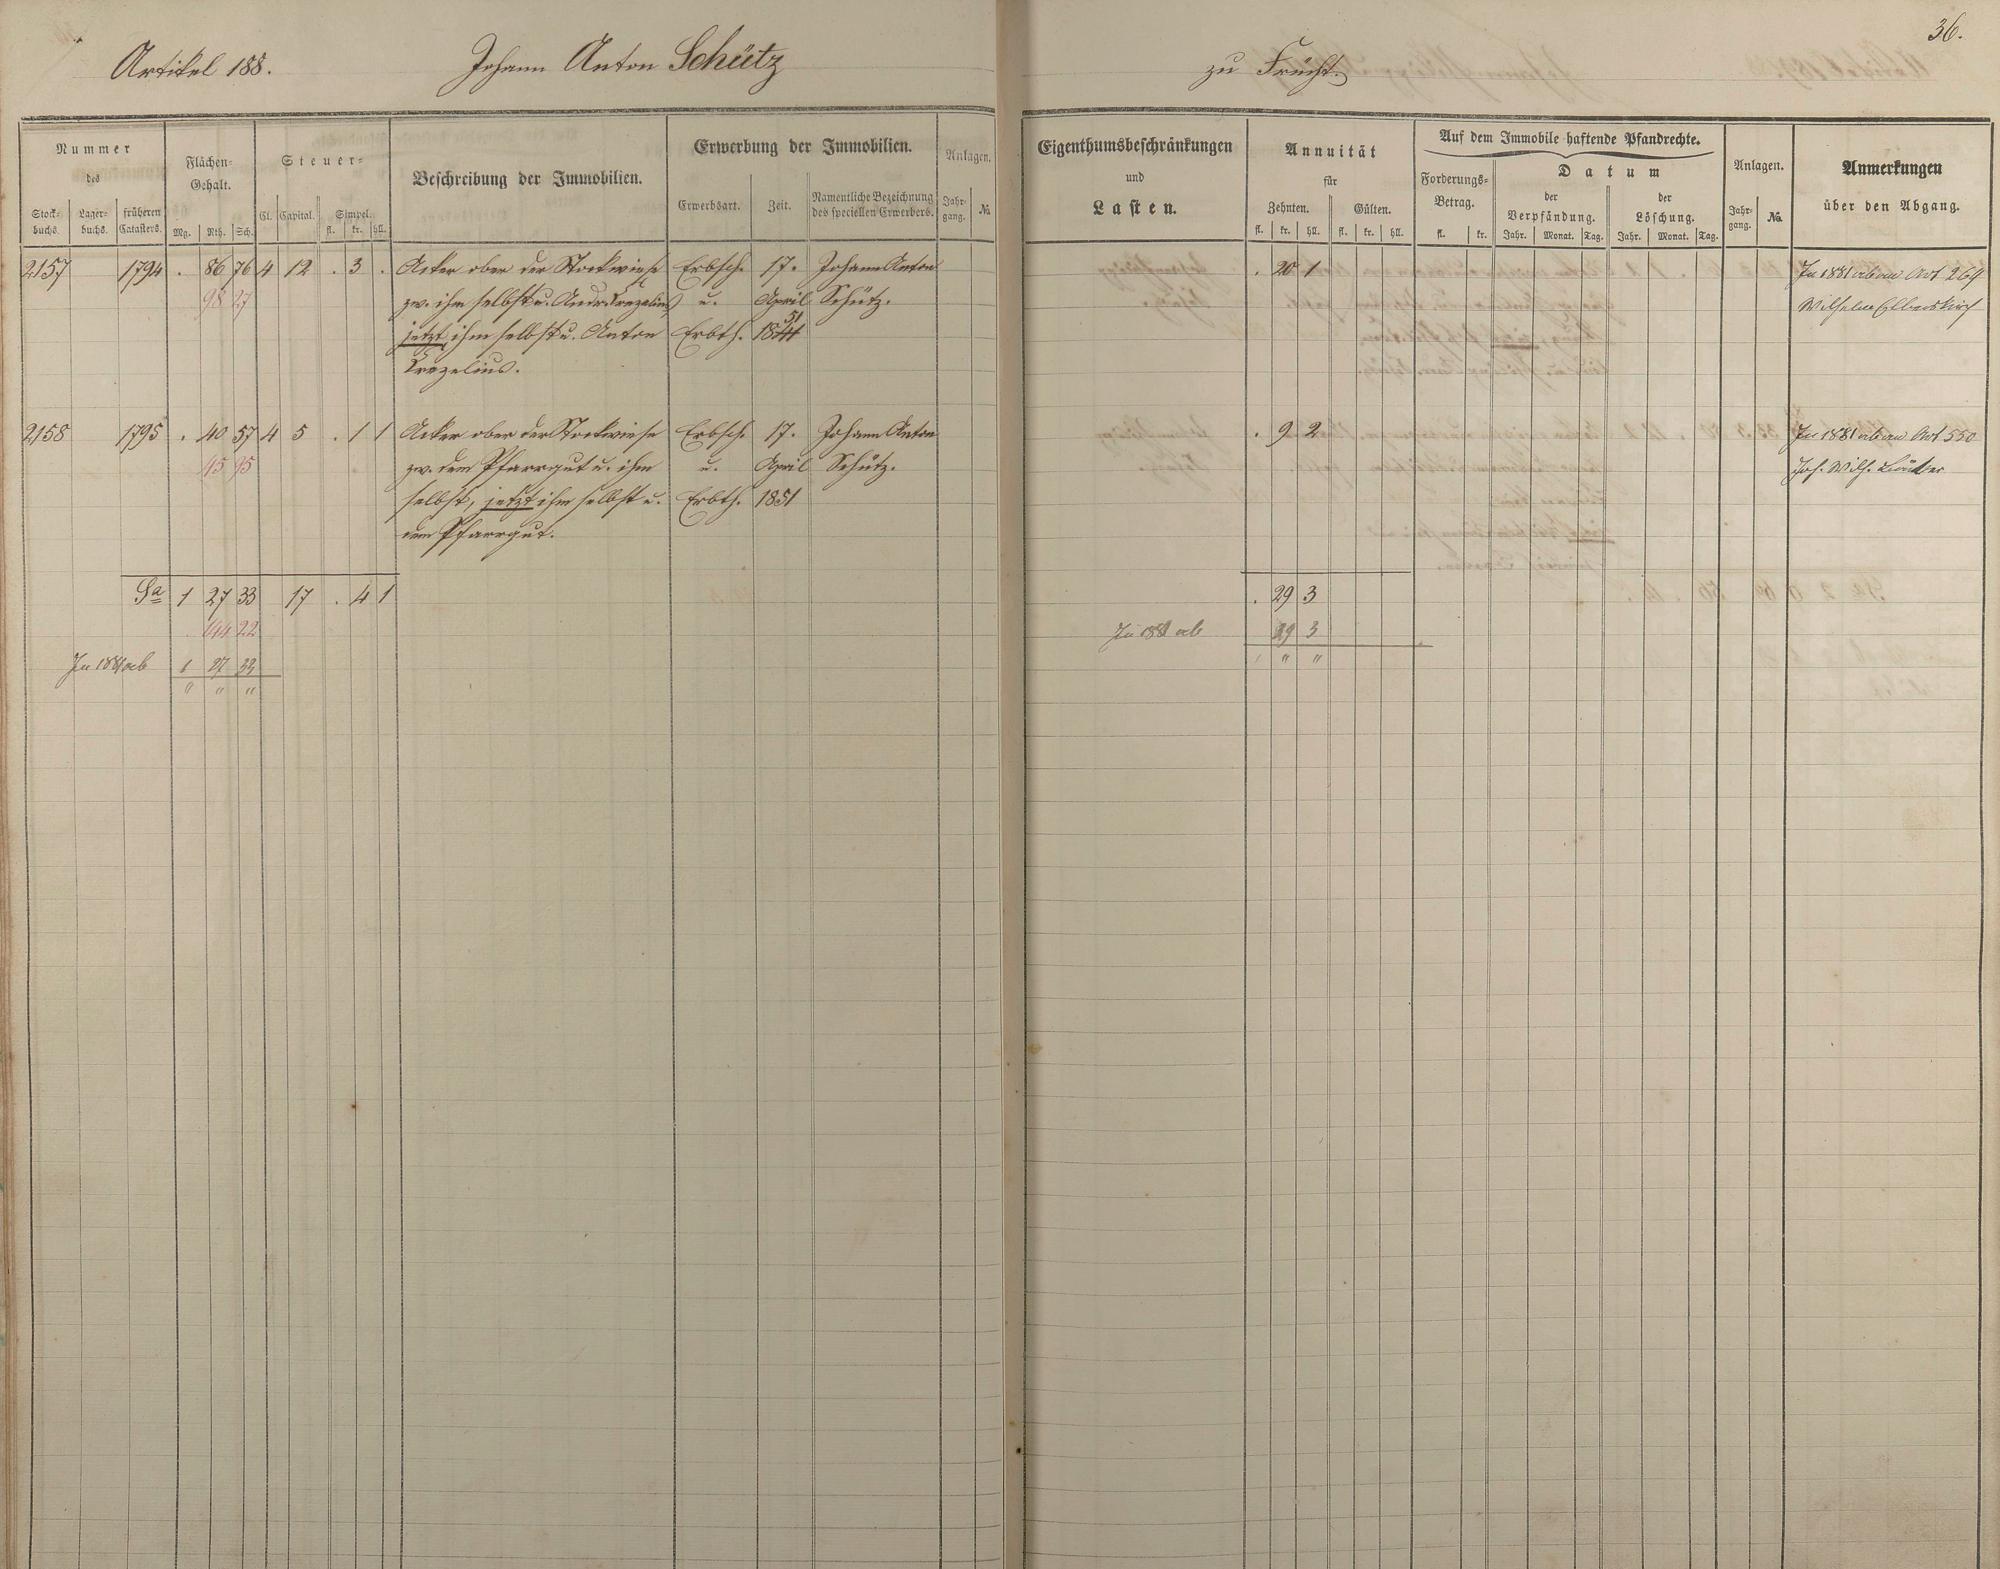 36.
Artikel 188. Johann Anton Schütz zu Frücht.
Nummer des
Stock-buchs. Lager-buchs. früheren Catasters.
Flächen-Gehalt.
Mg. Rth. Sch.
Steuer-
Cl. Capital. Simpel.
fl. kr. hll.
Beschreibung der Immobilien.
Erwerbung der Immobilien.
Erwerbsart. Zeit. Namentliche Bezeichnung des speciellen Erwerbers.
Anlagen.
Jahr-gang. №
Eigenthumsbeschränkungen
und
Lasten.
Annuität
für
Zehnten. Gülten.
fl. kr. hll. fl. kr. hll.
Auf dem Immobile haftende Pfandrechte.
Forderungs-Betrag.
fl. kr.
Datum
der Verpfändung. der Löschung.
Jahr. Monat. Tag. Jahr. Monat. Tag.
Anlagen.
Jahr-gang. №
Anmerkungen
über den Abgang.
2157 1794 . 86 76 4 12 . 3 . Acker ober der Stockwiese Erbsch. 17. Johann Anton . 20 1 In 1881 ab an Art 269
98 27 zw. ihm selbst u. Andr. Crezelius, u. April Schütz. Wilhelm
jetzt ihm selbst u. Anton Erbth. 1844 51
Crezelius.
2158 1795 . 40 57 4 5 . 1 1 Acker ober der Stockwiese Erbsch. 17. Johann Anton . 9 2 In 1881 ab an Art 550
45 95 zw. dem Pfarrgut u. ihm u. April Schütz. Joh. Wilh.
selbst, jetzt ihm selbst u. Erbth. 1851
dem Pfarrgut.
Sa 1 27 33 17 . 4 1 . 29 3
144 22 In 1881 ab 29 3
In 1881 ab 1 27 33 " " "
" " "